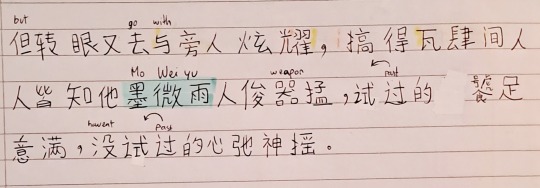 but go with
但转眼又去与旁人炫耀，搞得瓦肆间人
Mo Wei yu weapon past
人皆知他墨微雨人俊器猛，试过的 饕足
havent past
意满，没试过的心弛神摇。